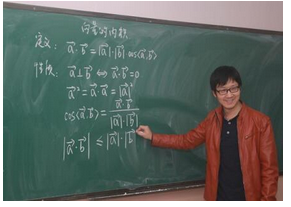 向量的内积
定义: a⃗·b⃗=|a⃗|·|b⃗|cos(a⃗.b⃗)
性质: a⃗⊥b⃗ ⇔ a⃗·b⃗=0
a⃗²=a⃗·a⃗=|a⃗|²
cos(a⃗.b⃗)=a⃗·b⃗/|a⃗|·|b⃗|
|a⃗·b⃗|≤|a⃗|·|b⃗|